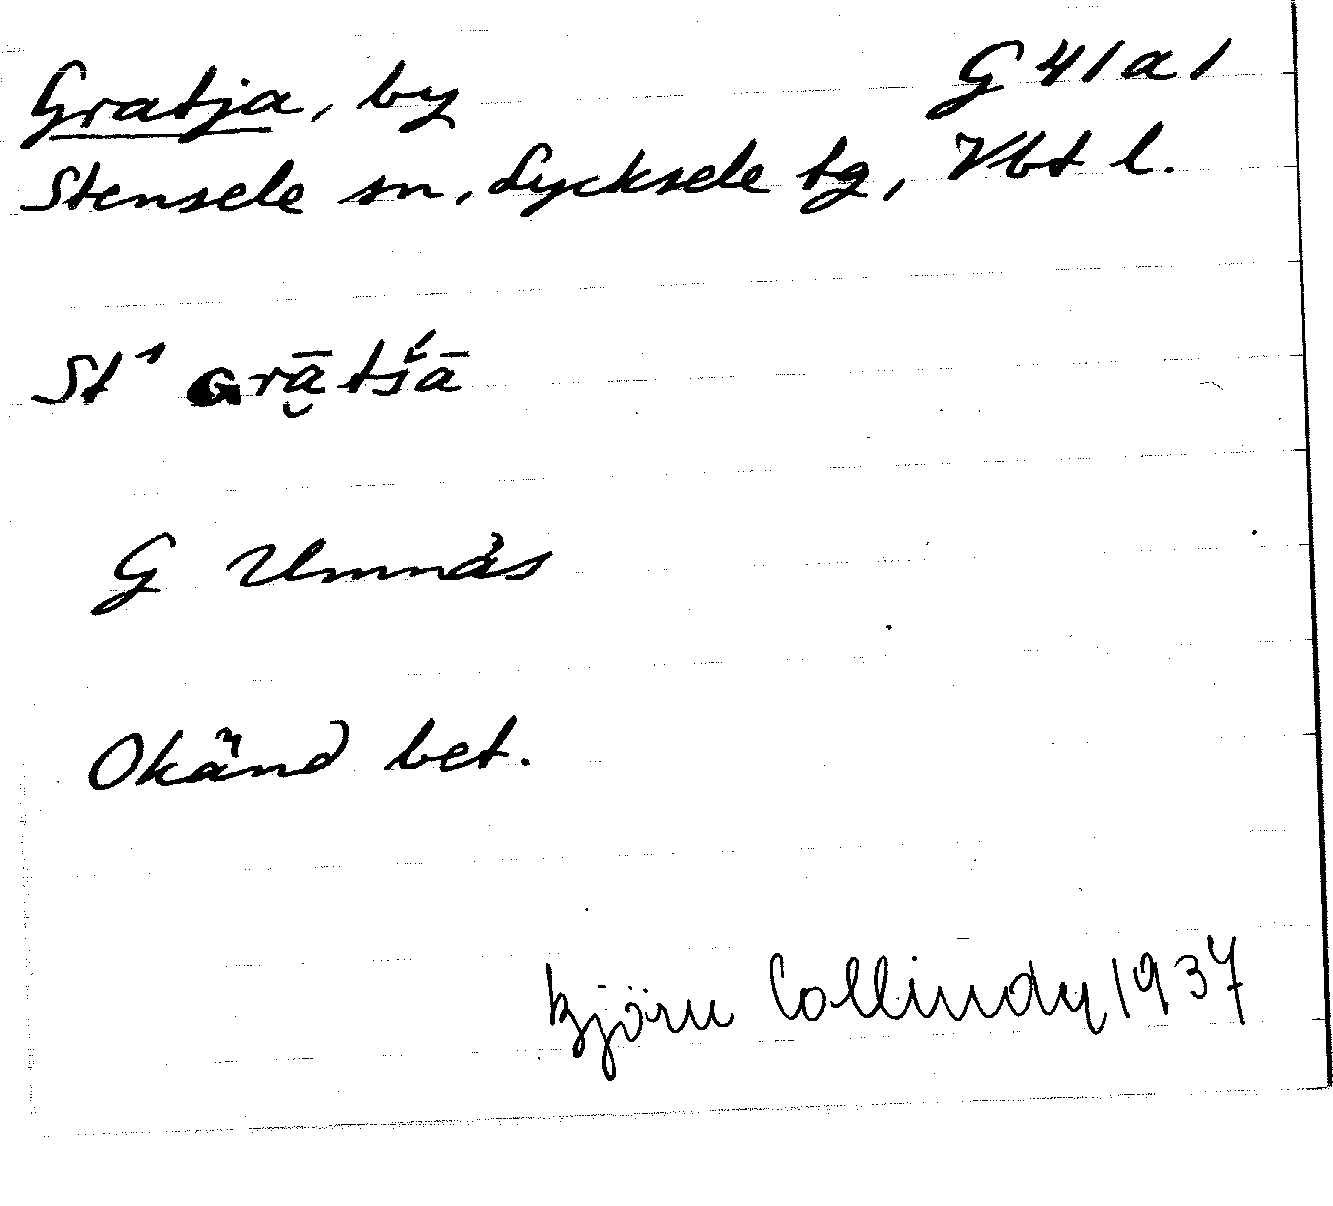 Gratja, by G 41 a 1
Stensele sn, Lycksele tg, Vbt l.
St¹ ɢrā̮tš́ā
G Umnäs
Okänd bet.
Björn Collinder 1937